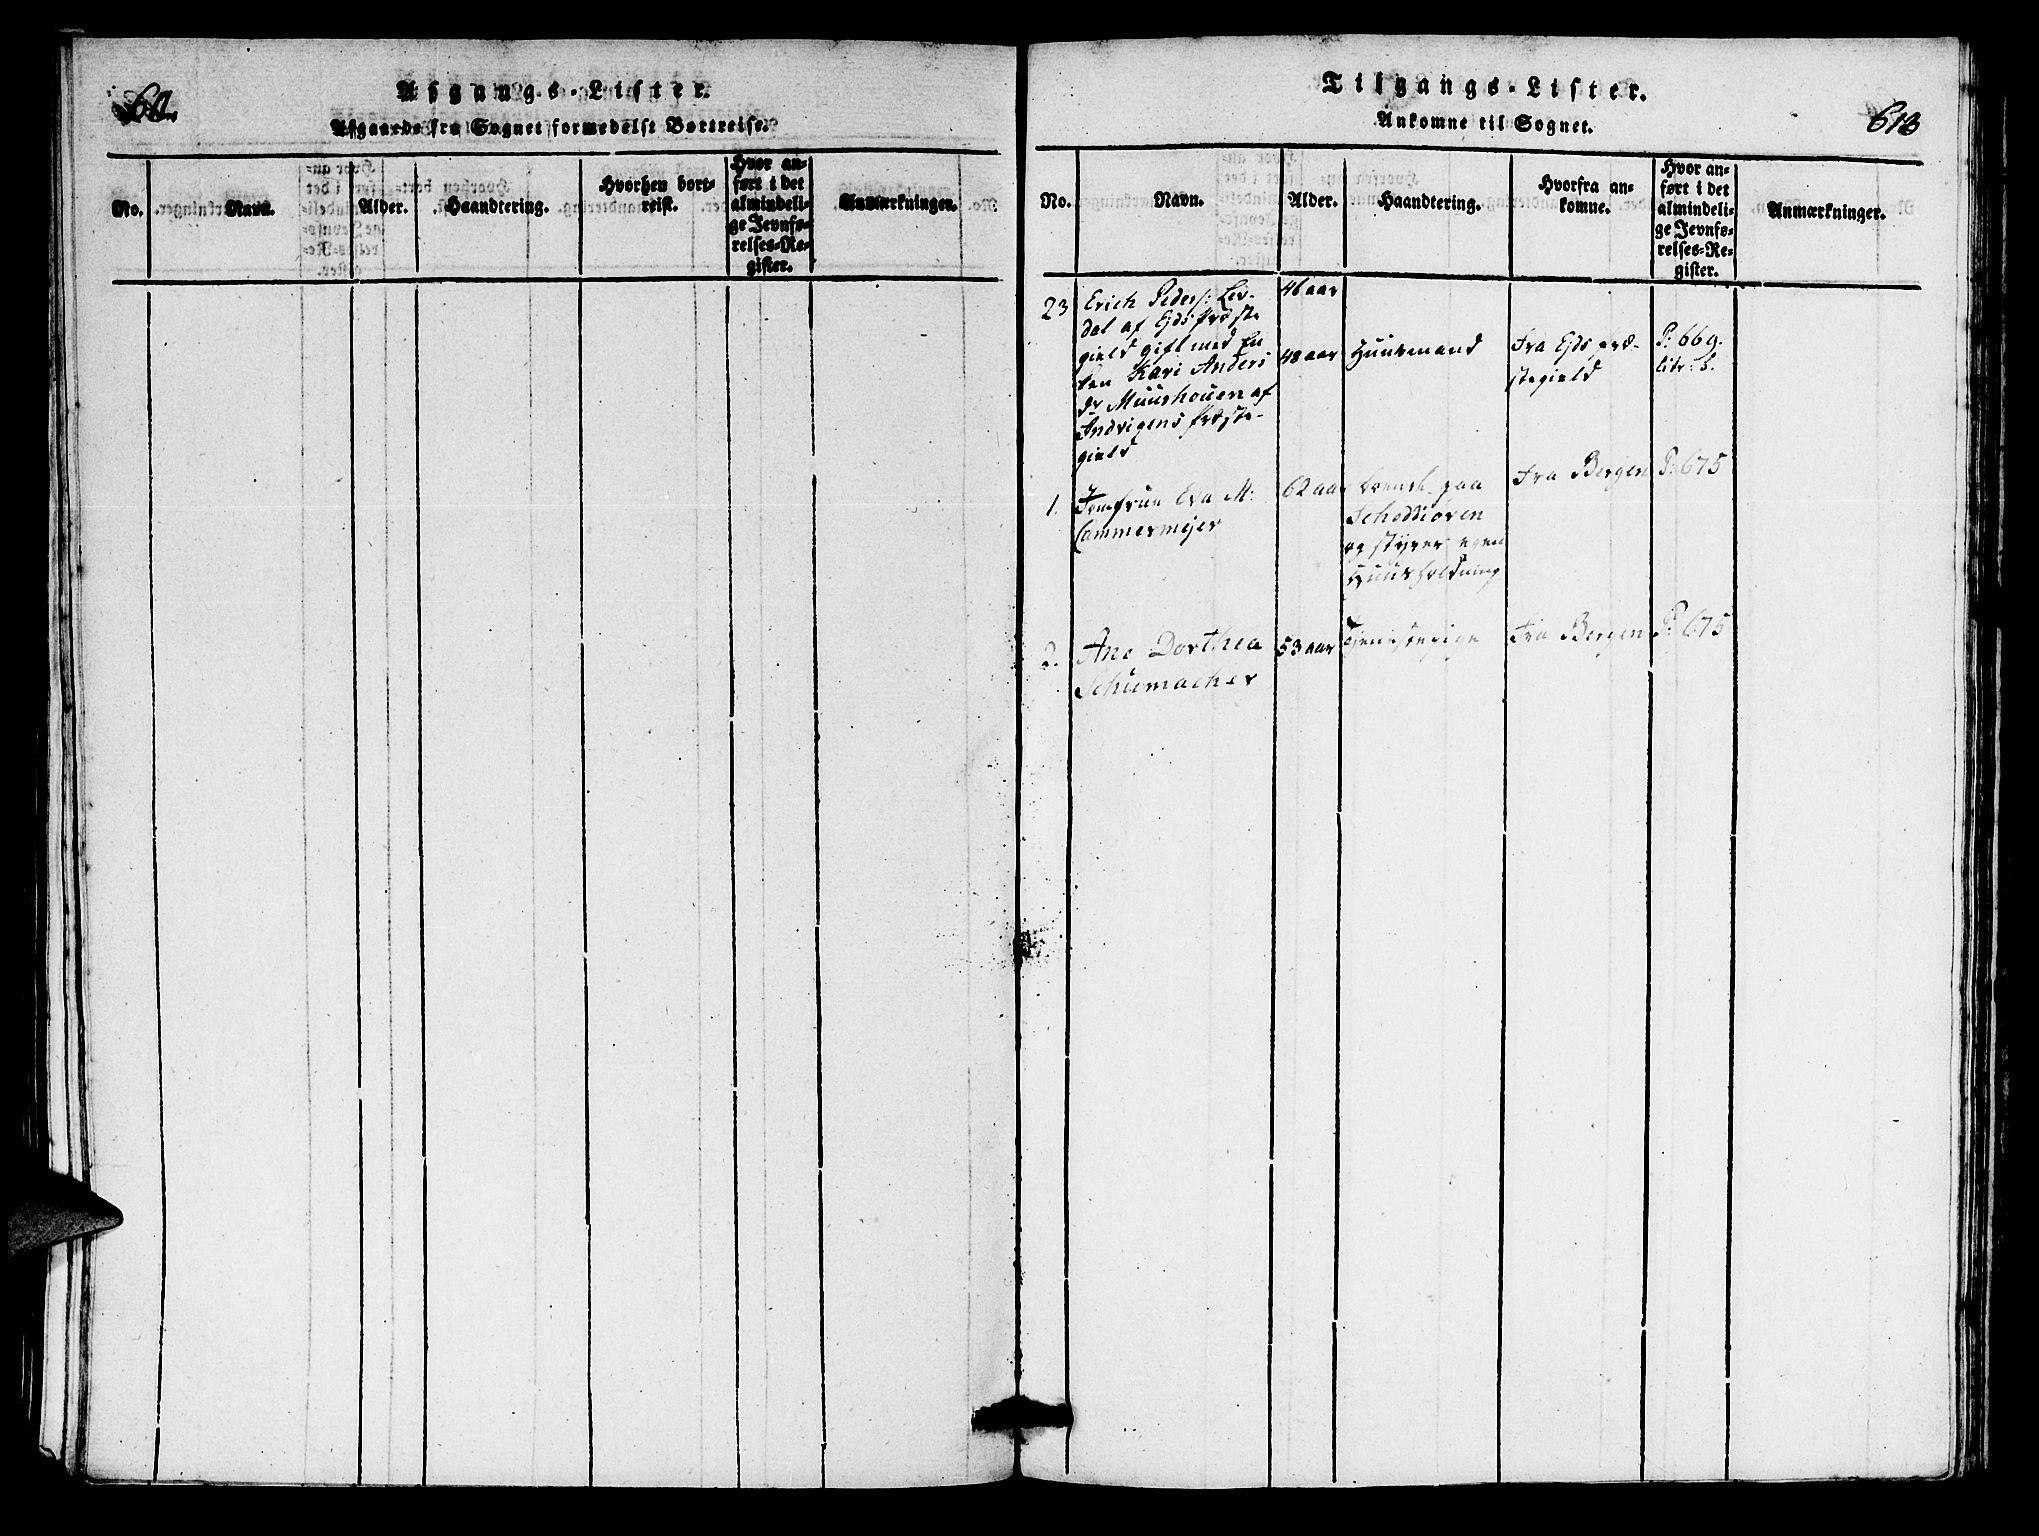 Afgangs-Lister.
Afgaaede fra Sognet formedelst Bortreise.
No.
Navn.
Alder.
Haandtering.
Hvorhen bort-
reist.
Hvor an-
ført i det
almindeli-
ge Jevnfø-
relses-Re-
gister.
Anmærkninger.
Tilgangs-Lister.
Ankomne til Sognet.
613
No.
Navn.
Alder.
Haandtering.
Hvorfra an-
komne.
Hvor an-
ført i det
almindeli-
ge Jevnfø-
relses-Re-
gister.
Anmærkninger.
23
Erich Peders: Lev-
dal af Ejds Præste
gield gift med En
ken Kari Anders
dr Muushouen af
Indvigens Præste-
gield
46 aar
48 aar
Huusmand
Fra Ejds præ-
stegield
P: 669.
litr: S.
1.
Jomfrue Eva M:
Cammermejer
62 aar
paa
og styrer egen
Huusholdning
Fra Bergen
P: 675
2.
Ane Dorthea
Schumacher
53 aar
Tjenistepige
Fra Bergen
P: 675